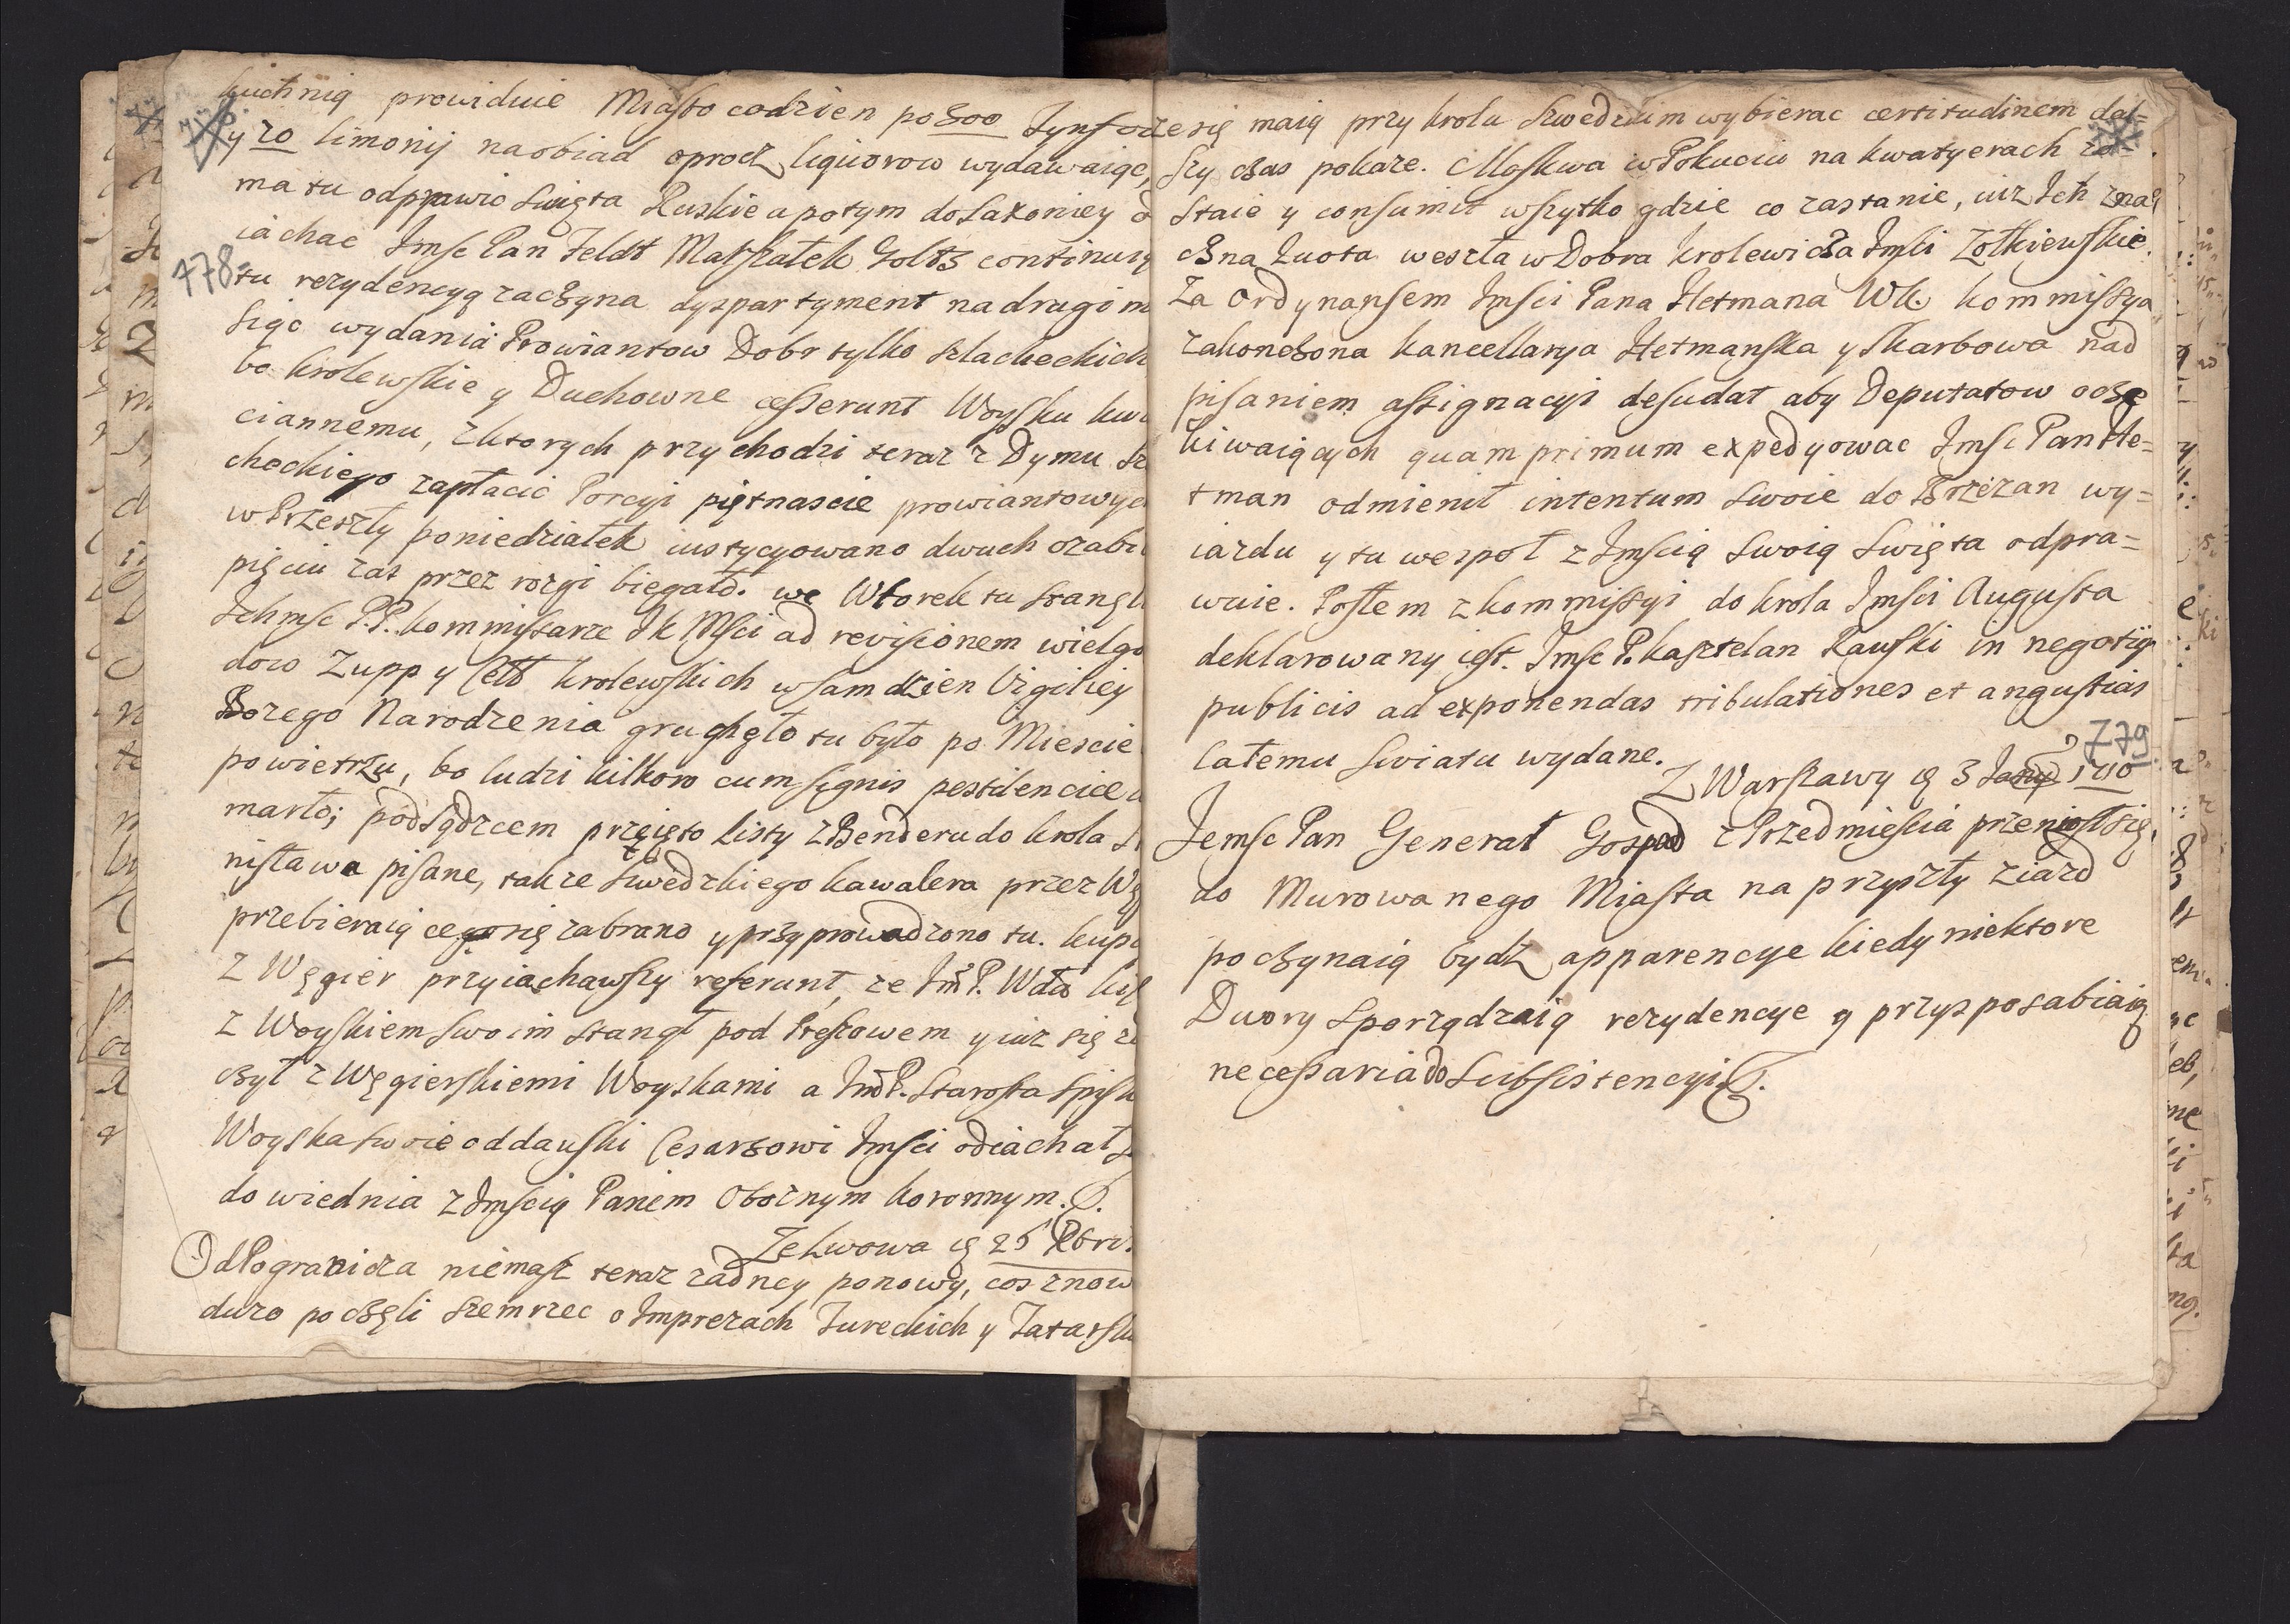 kuchnią prowiduie Miasto codzien po 300 Tynfow
y 20 limonij na obiad oprocz liquorow wydawaiąc,
ma tu odprawić swięta Ruskie a potym do Saxoniey
iachac Imsc Pan Feldt Marszałek Goltz continuią
478
tu rezydencyą zaczyna dyspartyment na drugi m
siąc wydania Prowiantow Dobr tylko szlacheckich
bo krolewskie y Duchowne cesserunt Woysku kwa
ciannemu, z ktorych przychodzi teraz z Dymu sz
checkiego zapłacić Porcyi piętnascie prowiantowych
w Przeszły poniedziałek iustycyowano dwuch o zabr
pięciu zas przez rozgi biegało. we Wtorek tu stanęli
Ichmsc P.P. kommissarze Ik Msci ad revisionem wielgo
dow Zupp y Cełł krolewskich w sam dzien Vigiliey
Bozego Narodzenia gruchęło tu było po Miescie
powietrzu, bo ludzi kilkoro cum signis pestilenciae u
marło; pod Sądczem przeięto Listy z Benderu do krola S
nisława pisane, takze Szwedzkiego kawalera przez Wę
przebieraiącego się zabrano y przyprowadzono tu. kupc
z Węgier przyiachawszy referunt, ze Im P. Wda kij
z Woyskiem swoim stanął pod Preszowem y iuz się z
czył z Węgierskiemi Woyskami a Im P. Starosta Spisk
Woyska swoie oddawszi Cesarzowi Imsci odiachał
do wiednia z Imscią Panem Oboznym koronnym.
Ze Lwowa 26 Xbri.
Od Pogranicza niemasz teraz zadney ponowy, cos znow
duzo poczęli szemrzec o Imprezach Tureckich y Tatarsk
ze się maią przy krolu Szwedzkim wybierac certitudinem dal=
szy czas pokaze. Moskwa w Pokuciu na kwatyerach zo=
staie y consumit wszytko gdzie co zastanie, iuz Ich zna
czna kwota weszła w Dobra krolewicza Imsci Zołkiewskie.
Za Ordynansem Imsci Pana Hetmana Wk. kommissya
zakonczona kancellarya Hetmanska y skarbowa nad
pisaniem assignacyi desudat aby Deputatow ocze
kiwaiących quam primum expedyowac Imsc Pan He=
tman odmienił intentum swoie do Brzezan wy=
iazdu y tu wespoł z Imscią swoią swięta odpra=
wuie. Posłem z kommissyi do krola Imsci Augusta
deklarowany iest. Imsc P. kasztelan Rawski in negotijs
publicis ad exponendas tribulationes et angustias
całemu swiatu wydane.
779
Z Warszawy 3 1710
Jemsc Pan Generał z Przedmiescia przeniosł się
do Murowanego Miasta na przyszły ziazd
poczynaią bydz apparencye kiedy niektore
Dwory sporządzaią rezydencye y przysposabiaią
necessaria do subsistencyi.